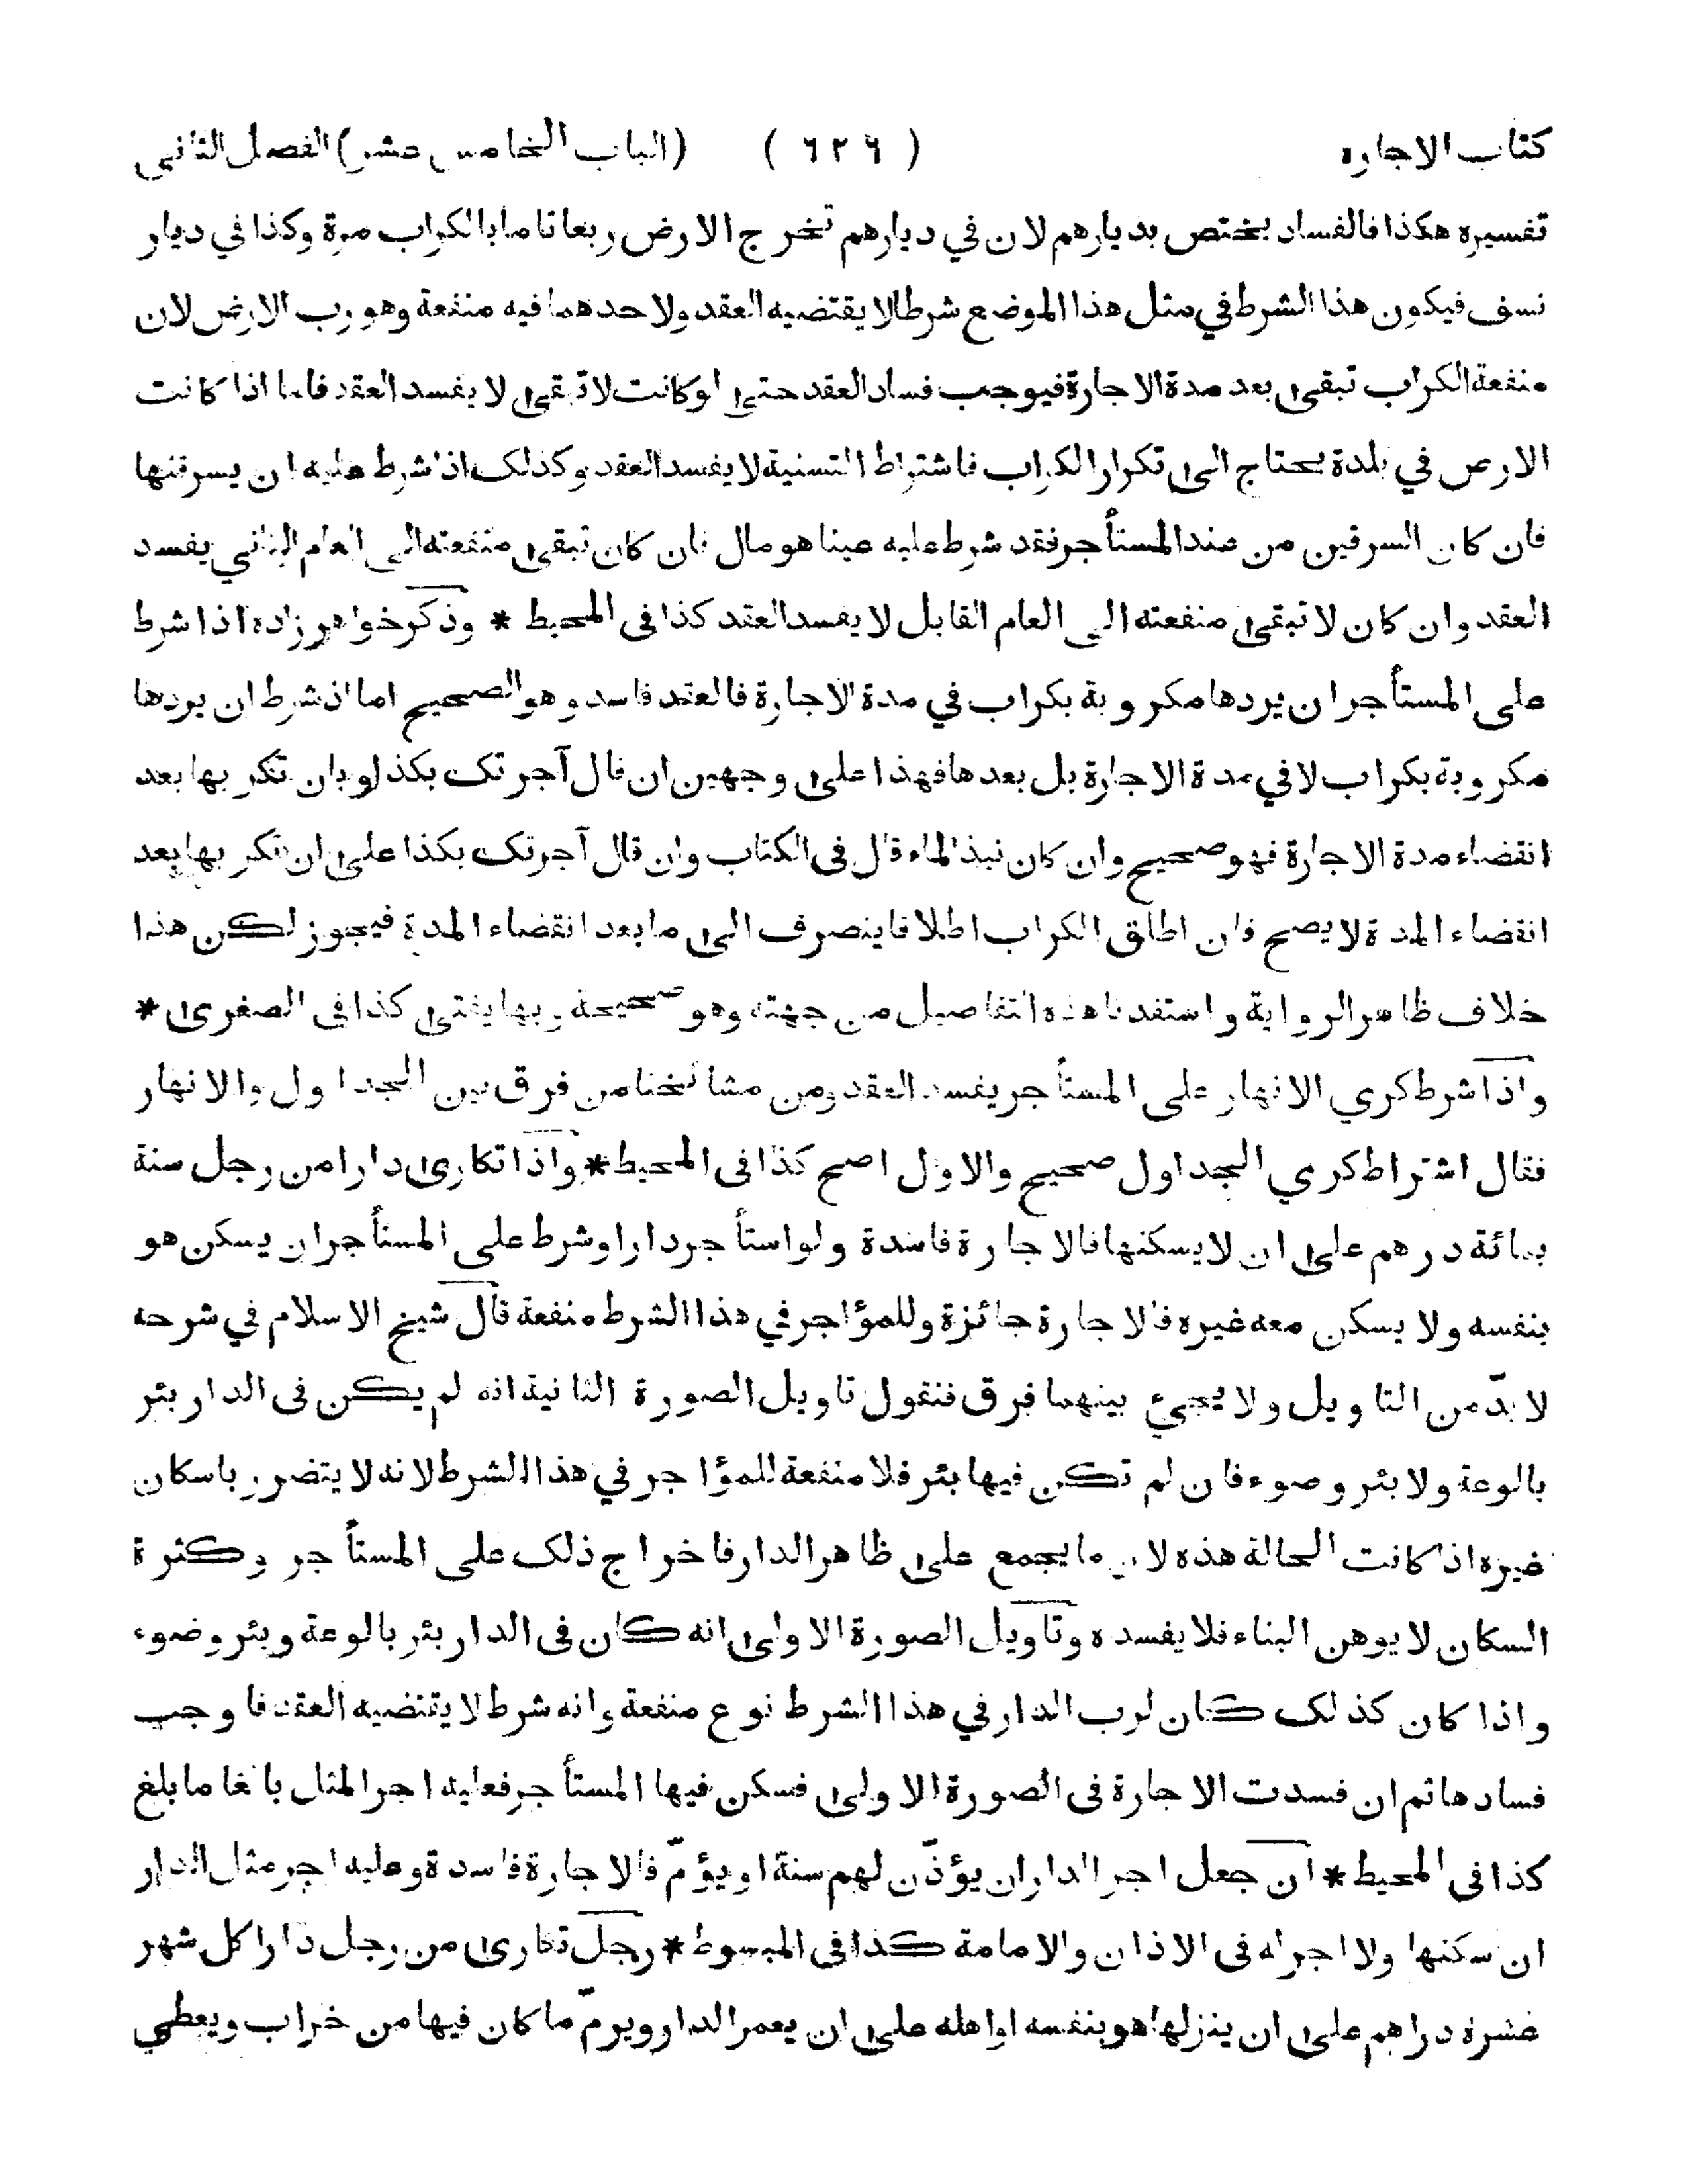 كتاب الاجارة ( ٦٢٦ ) (الباب الخامس عشر) الفصل الثاني
تفسيره هكذا فالفساد يختص بديارهم لان في ديارهم تخرج الارض ربعا تاما بالكراب مرة وكذا في ديار
نسف فيكون هذا الشرط في مثل هذا الموضع شرطا لا يقتضيه العقد ولاحدهما فيه منفعة وهو رب الارض لان
منفعة الكراب تبقى بعد مدة الاجارة فيوجب فساد العقد حتى لو كانت لا تبقى لا يفسد العقد فاما اذا كانت
الارض في بلدة يحتاج الى تكرار الكراب فاشتراط التسنية لا يفسد العقد وكذلك اذا شرط عليه ان يسرقنها
فان كان السرقين من عند المستأجر فقد شرط عليه عينا هو مال فان كان تبقى منفعته الى العام الثاني يفسد
العقد وان كان لا تبقى منفعته الى العام القابل لا يفسد العقد كذا فى المحيط * وذكر خواهر زاده اذا شرط
على المستأجر ان يردها مكروبة بكراب في مدة الاجارة فالعقد فاسد وهو الصحيح اما اذ شرط ان يردها
مكروبة بكراب لا في مدة الاجارة بل بعدها فهذا على وجهين ان قال آجرتك بكذا وبان تكربها بعد
انقضاء مدة الاجارة فهو صحيح وان كان نبذ الماء قال فى الكتاب وان قال آجرتك بكذا على ان تكربها بعد
انقضاء المدة لا يصح فان اطلق الكراب اطلاقا ينصرف الى ما بعد انقضاء المدة فيجوز لكن هذا
خلاف ظاهر الرواية واستفدنا هذه التفاصيل من جهته وهو صحيحة وبها يفتى كذا فى الصغرى *
واذا شرط كري الانهار على المستأجر يفسد العقد ومن مشائخنا من فرق بين الجداول والانهار
فقال اشتراط كري الجداول صحيح والاول اصح كذا فى المحيط * واذا تكارى دارا من رجل سنة
بمائة درهم على ان لا يسكنها فالاجارة فاسدة ولو استأجر دارا وشرط على المستأجر ان يسكن هو
بنفسه ولا يسكن معه غيره فالاجارة جائزة وللمؤاجر في هذا الشرط منفعة قال شيخ الاسلام في شرحه
لا بدّ من التاويل ولا يجيئ بينهما فرق فنقول تاويل الصورة الثانية انه لم يكن فى الدار بئر
بالوعة ولا بئر وضوء فان لم تكن فيها بئر فلا منفعة للمؤاجر في هذا الشرط لانه لا يتضرر باسكان
غيره اذا كانت الحالة هذه لان ما يجمع على ظاهر الدار فاخراج ذلك على المستأجر وكثرة
السكان لا يوهن البناء فلا يفسده وتاويل الصورة الاولى انه كان فى الدار بئر بالوعة وبئر وضوء
واذا كان كذلك كان لرب الدار في هذا الشرط نوع منفعة وانه شرط لا يقتضيه العقد فاوجب
فسادها ثم ان فسدت الاجارة فى الصورة الاولى فسكن فيها المستأجر فعليه اجر المثل بالغا ما بلغ
كذا فى المحيط * ان جعل اجر الدار ان يؤذّن لهم سنة او يؤمّ فالاجارة فاسدة وعليه اجر مثل الدار
ان سكنها ولا اجر له فى الاذان والامامة كذا فى المبسوط * رجل تكارى من رجل دارا كل شهر
عشرة دراهم على ان ينزلها هو بنفسه او اهله على ان يعمر الدار ويرمّ ما كان فيها من خراب ويعطي